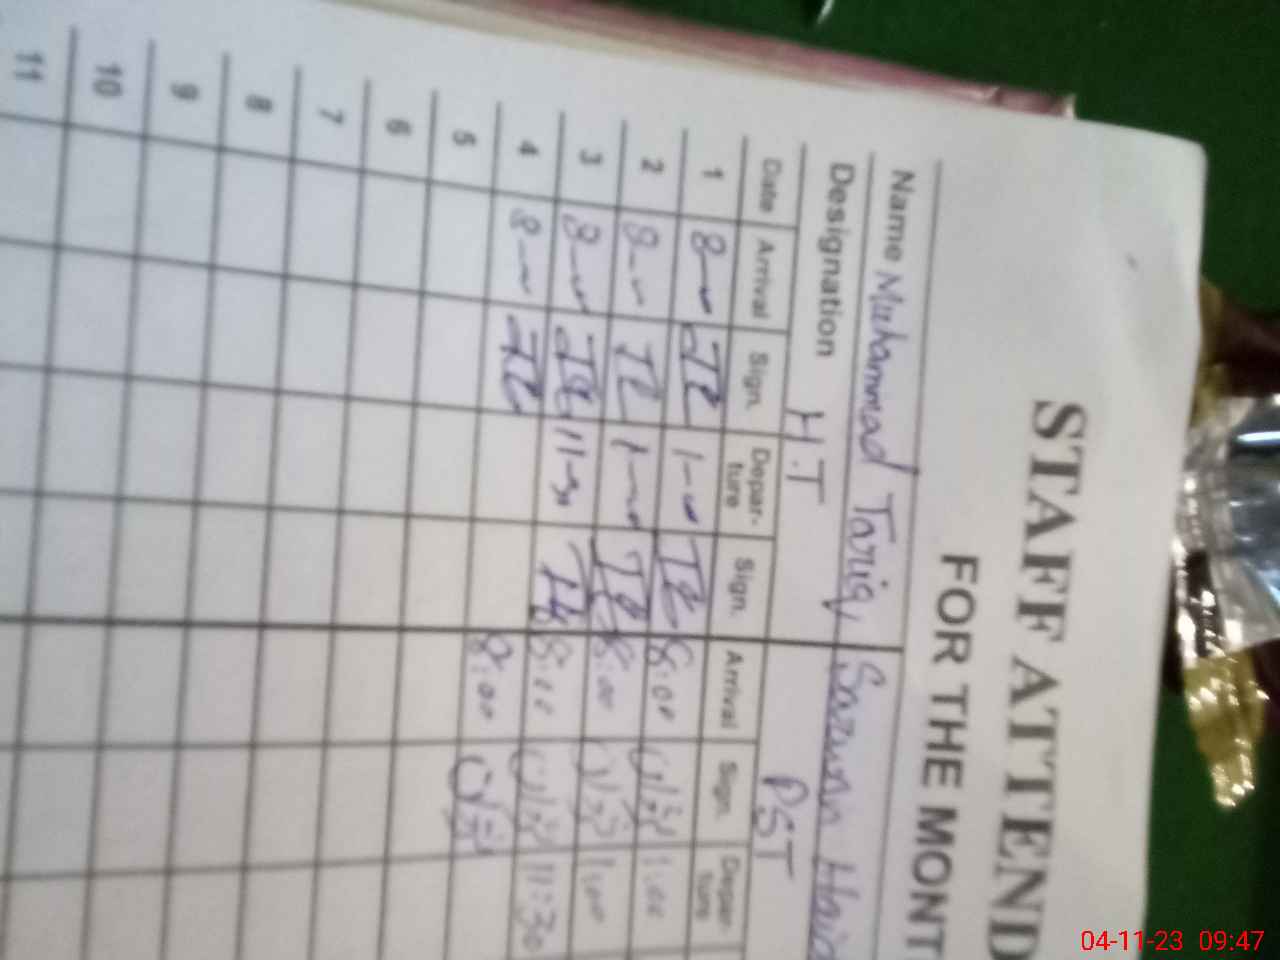 STAFF ATTEND
FOR THE MONT
Name Muhammad Tariq
Designation H.T PST
Date Arrival Sign. Depar-ture Sign. Arrival Sign. Depar-ture
1 8-00 1-00 8:00 1:00
2 8-00 1-00 8:00 1:00
3 8-00 11-30 8:00 11:30
4 8-00 8:00
5
6
7
8
9
10
11
04-11-23 09:47